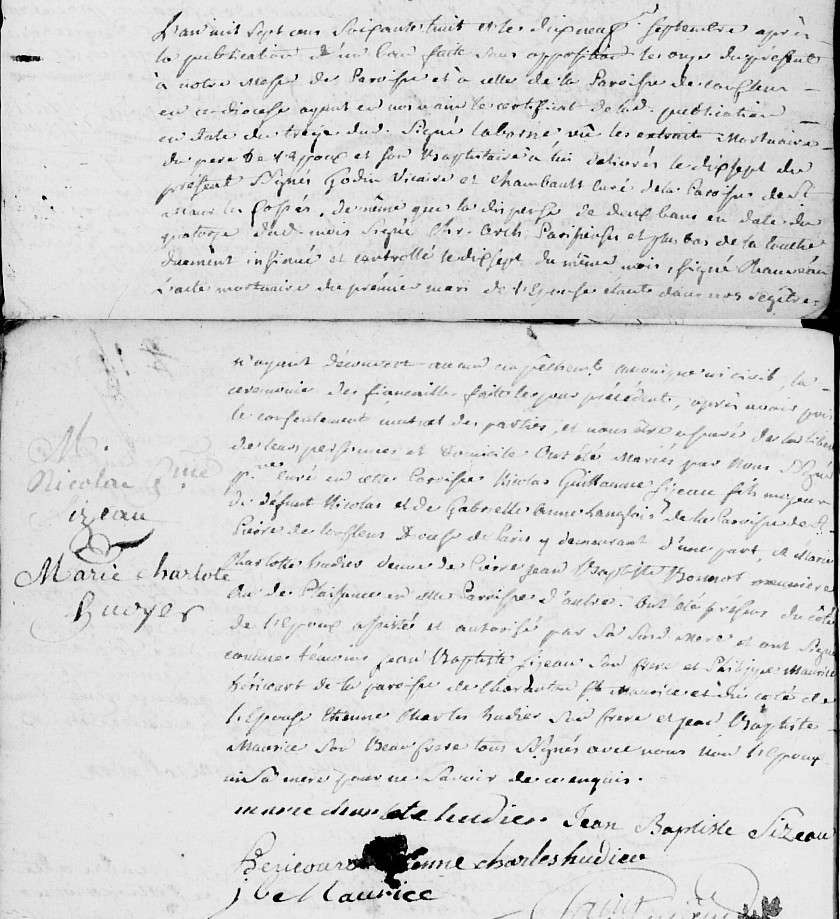 L'an mil sept cens soixante huit et le dixneuf septembre après
la publication d'un ban faite sans opposition le onze du présent
à notre Messe de Paroisse et à celle de la Paroisse de Conflens
en ce diocese ayant en nos main le certificat de lad. publication
en date du treize dud. Signé Laborne vû les extraits Mortuaire
du pere de l'Epoux et son Baptistaire à lui délivrés le dixsept du
présent Signés Godin Vicaire et Chambault curé de la Paroisse de St
Maur les fossés, de même que la dispense de deux bans en date du
quatorze dud. mois Signé Chr. Arch. Parisiensis et plus bas de la Touche
duement insinué et controllé le dixsept du même mois, Signé Chauveau
L'acte mortuaire du prémier mari de l'Epouse etant dans nos regître
n'ayant découvert aucun empêchemt. canonique ni civil, la
ceremonie des fiancailles faite le jour précédent, après avoir pris
le consentement mutuel des parties, et nous être assurés de la liberté
de leurs personnes et domicile Ont été Mariés par Nous
curé en cette Paroisse Nicolas Guillaume Sizeau fils majeur
de défunt Nicolas et de Gabrielle Anne Langlois de la Paroisse de St
Pierre de Conflens Diocese de Paris y demeurant d'une part, et Marie
Charlotte hudier veuve de Pierre Jean Baptiste
de Plaisance en cette Paroisse d'autre. Ont été présens du côté
de l'Epoux assisté et autorisé par Sa Susd. Mere et ont Signé
comme témoins Jean Baptiste Sizeau Son frere et Philippe Maurice
héricourt de la paroisse de Charenton St Maurice et du coté de
l'Epouse Etienne Charles hudier Son frere et Jean Baptiste
Maurice Son Beau frere tous Signés avec nous non l'Epoux
ni Sa mere pour ne Savoir de ce enquis.
M.
Nicolas Gme
Sizeau
Marie Charlote
huoyer
marie charlotte hudier Jean Baptiste Sizeau
hericourt etienne charles hudier
j be Maurice